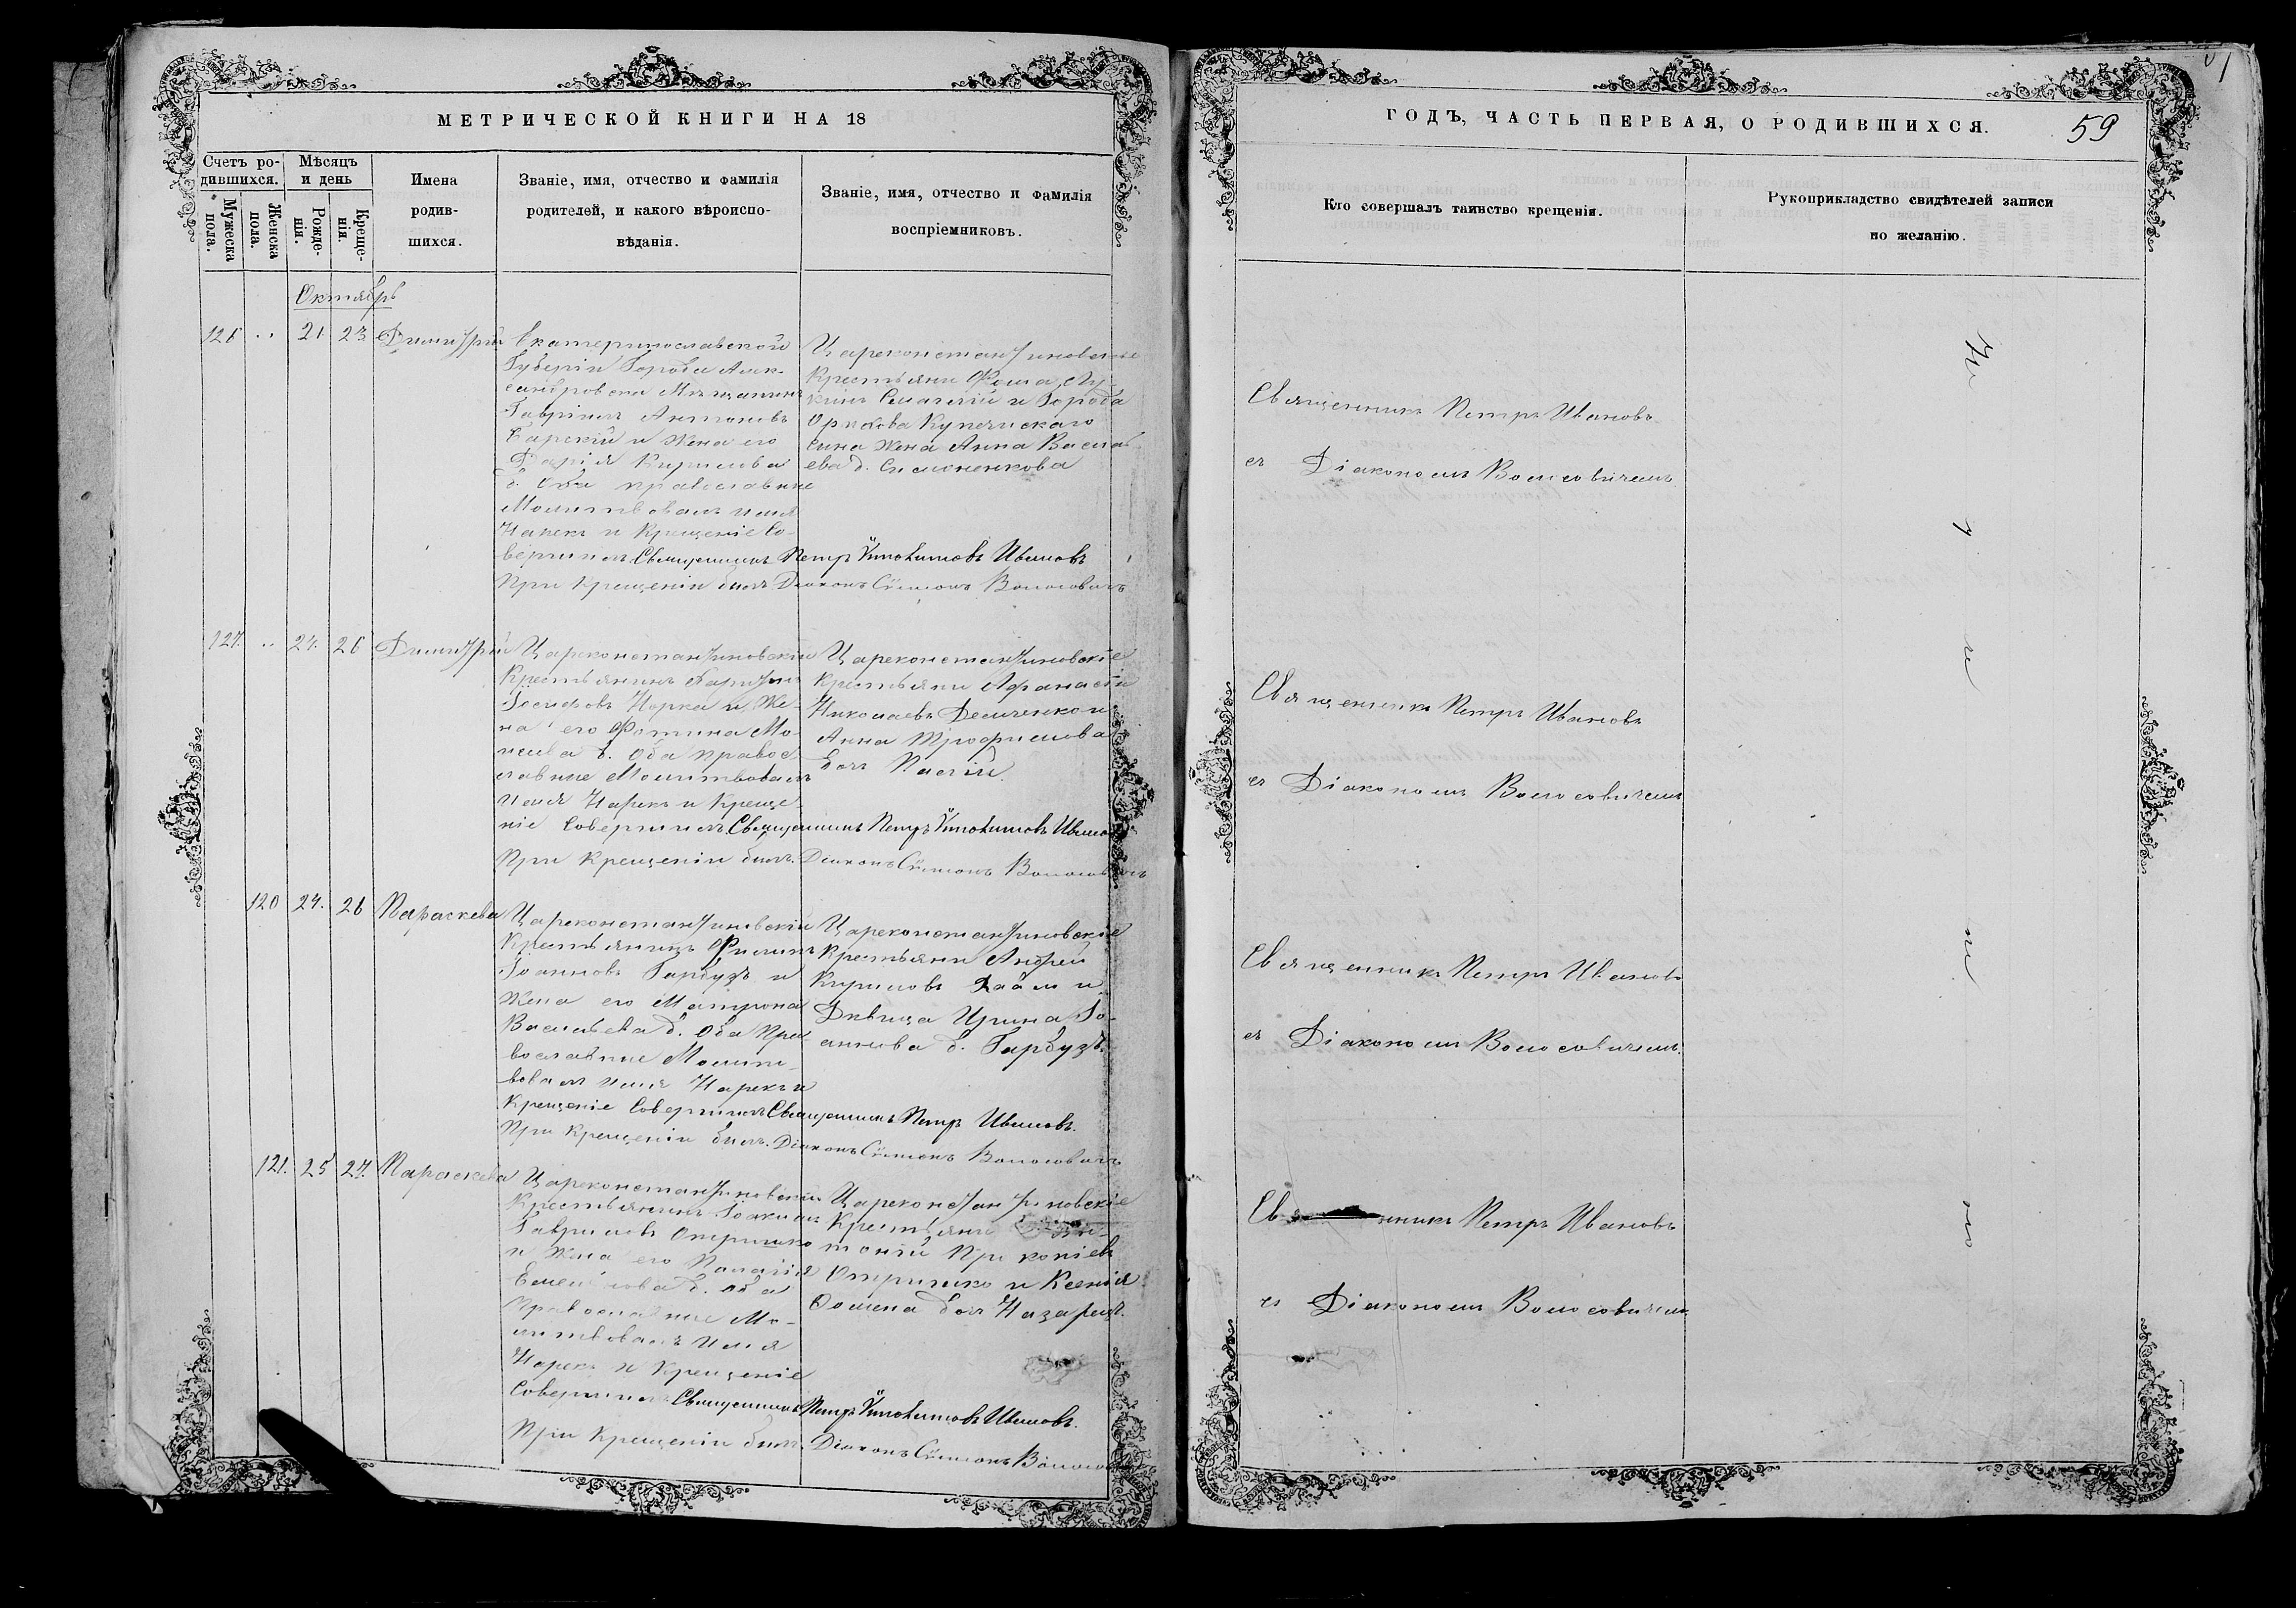 МЕТРИЧЕСКОЙ КНИГИ НА 18
Счетъ ро-
дившихся.
Мужеска
пола.
Женска
пола.
Мѣсяцъ
и день
Рожде-
нія.
Креще-
нія.
Имена
родив-
шихся.
Званіе, имя, отчество и фамилія
родителей, и какого вѣроиспо-
вѣданія.
Званіе, имя, отчество и фамилія
воспріемниковъ.
Октябрь
126 21 23 Димитрій
Екатеринославской
Губерніи Города Алек-
сандровска Мѣщанинъ
Гавріилъ Антоновъ
и жена его
Дарія Кирилова
д. Оба православные
Молитвовалъ имя
Нарекъ и Крещеніе Со-
вершилъ Священникъ Петръ Ивановъ
При Крещеніи былъ Діаконъ Симеонъ Волосовичъ
Цареконстантиновскіе
Крестьяни Фома Лу-
кинъ и Города
Орѣхова Купеческаго
сына жена Анна Василь
ева д. Симоненкова
127. 24. 26 Димитрій
Цареконстантиновскій
Крестьянинъ
Іосифовъ Норка и Же-
на его Фотина Мо-
исеева д. Оба Правос-
лавные Молитвовалъ
имя Нарекъ и Креще-
ніе Совершилъ Священникъ Петръ Ивановъ
При Крещеніи былъ. Діаконъ Симеонъ Волосовичъ
Цареконстантиновскіе
Крестьяни Афанасій
Николаевъ Демченко и
Анна Трофимова
дочь Палій.
120 24. 26 Параскева
Цареконстантиновскій
Крестьянинъ Филипъ
Іоанновъ Гарбузъ и
жена его Матрона
Васильева д. Оба Пра
вославные Молит-
вовалъ имя Нарекъ и
Крещеніе Совершилъ Священникъ Петръ Ивановъ.
При Крещеніи былъ. Діаконъ Симеонъ Волосовичъ
Цареконстантиновскіе
Крестьяни Андрей
Кириловъ и
Дѣвица Ирина Іо-
аннова д. Гарбузъ.
121. 25 27. Параскева
Цареконстантиновскій
Крестьянинъ Іоакимъ
Гавриловъ Отришко
и Жена его Палагія
д. Оба
Православные Мо-
литвовалъ имя
Нарекъ и Крещеніе
Совершилъ Священникъ Петръ Ивановъ.
При Крещеніи былъ. Діаконъ Симеонъ
Цареконстантиновскіе
Крестьяни Ан-
тоній Прокопіевъ
Отришко и Ксенія
Фомина дочь Назарец.
ГОДЪ, ЧАСТЬ ПЕРВАЯ, О РОДИВШИХСЯ.
59
Кто совершалъ таинство крещенія.
Рукоприкладство свидѣтелей записи
по желанію.
Священникъ Петръ Ивановъ
съ Діакономъ Волосовичемъ
Священникъ Петръ Ивановъ
съ Діакономъ Волосовичемъ
Священникъ Петръ Ивановъ
съ Діакономъ Волосовичемъ.
Петръ Ивановъ
съ Діакономъ Волосовичемъ